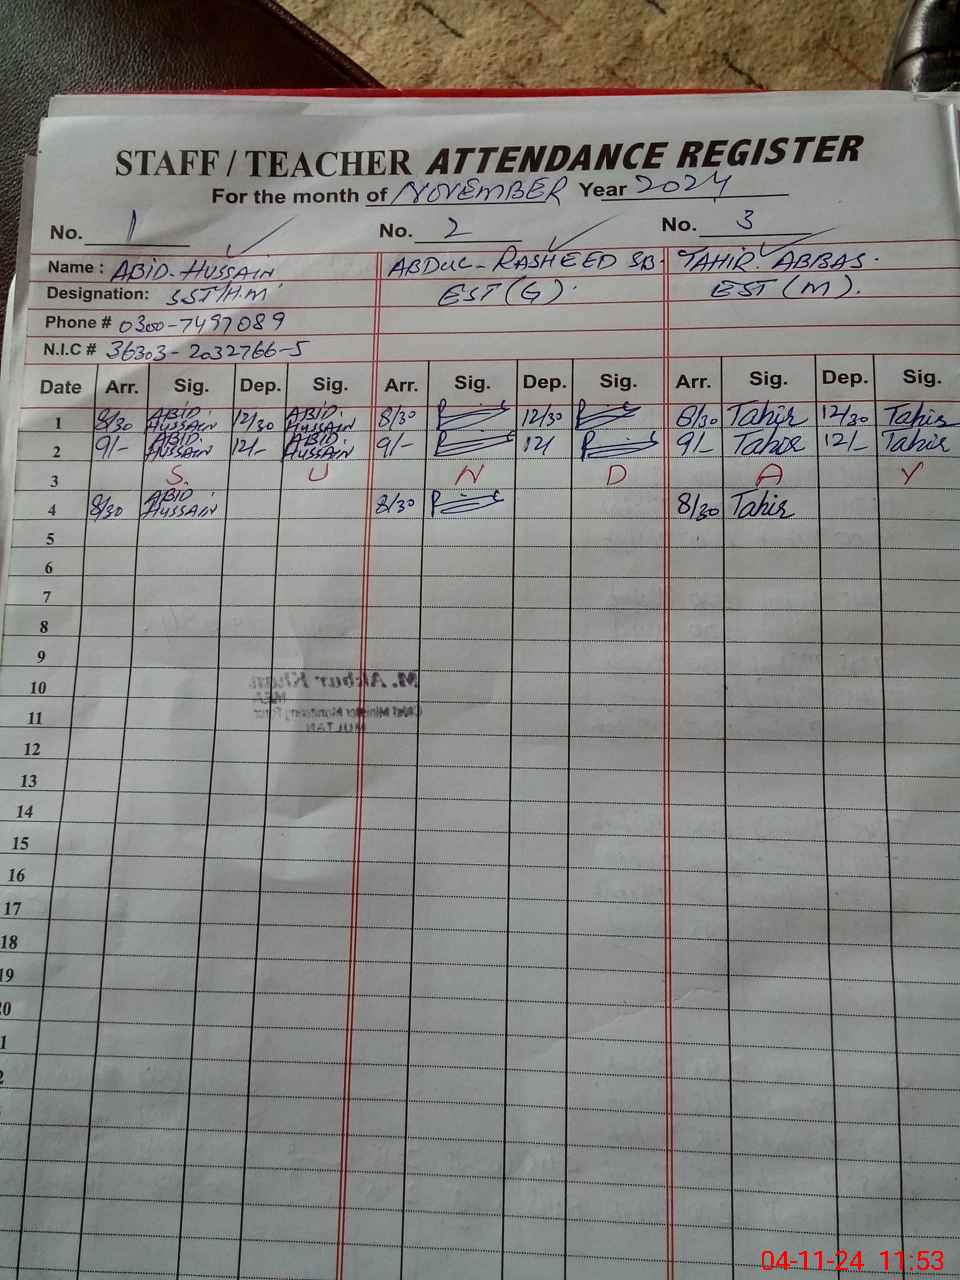 STAFF / TEACHER ATTENDANCE REGISTER
For the month of NOVEMBER Year 2024
No. 1 No. 2 No. 3
Name : ABID-HUSSAIN ABDUL-RASHEED SB. TAHIR ABBAS.
Designation: SST/H.M EST (G). EST (M).
Phone # 0300-7497089
N.I.C # 36303-2032766-5
Date Arr. Sig. Dep. Sig. Arr. Sig. Dep. Sig. Arr. Sig. Dep. Sig.
1 8/30 ABID HUSSAIN 12/30 ABID HUSSAIN 8/30 12/30 8/30 Tahir 12/30 Tahir
2 9/- ABID HUSSAIN 12/- ABID HUSSAIN 9/- 12/ 9/- Tahir 12/- Tahir
3 S U N D A Y
4 8/30 ABID HUSSAIN 8/30 8/30 Tahir
5
6
7
8
9
10 M. Akbar Khan
MEA
11 Chief Minister Monitoring Force
MULTAN
12
13
14
15
16
17
18
19
20
04-11-24 11:53